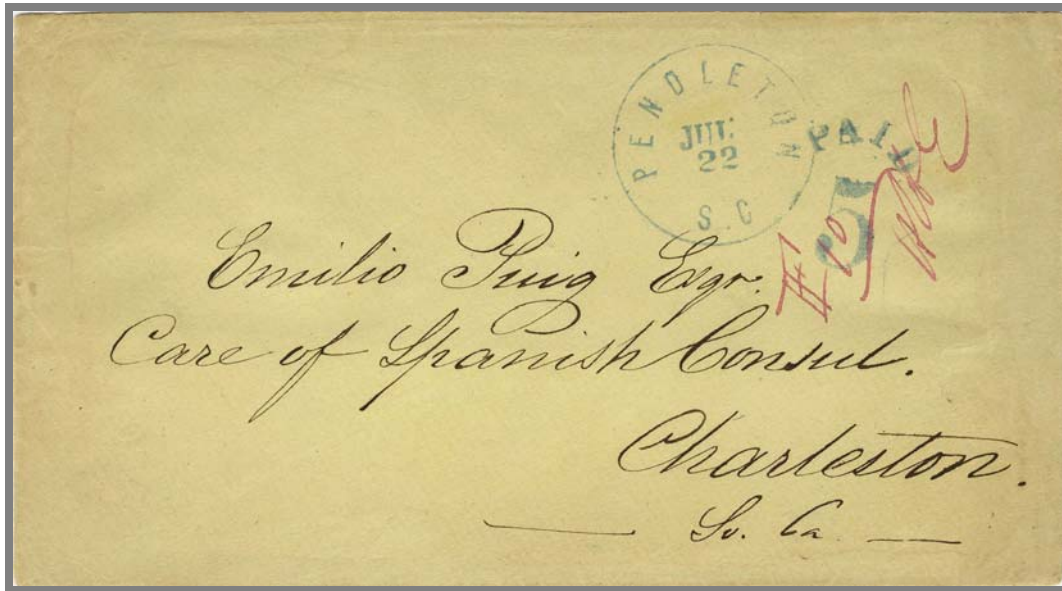 PENDLETON
JUL
22
S.C
PAID
5
Emilio Puig Esqr.
Care of Spanish Consul.
Charleston.
So. Ca